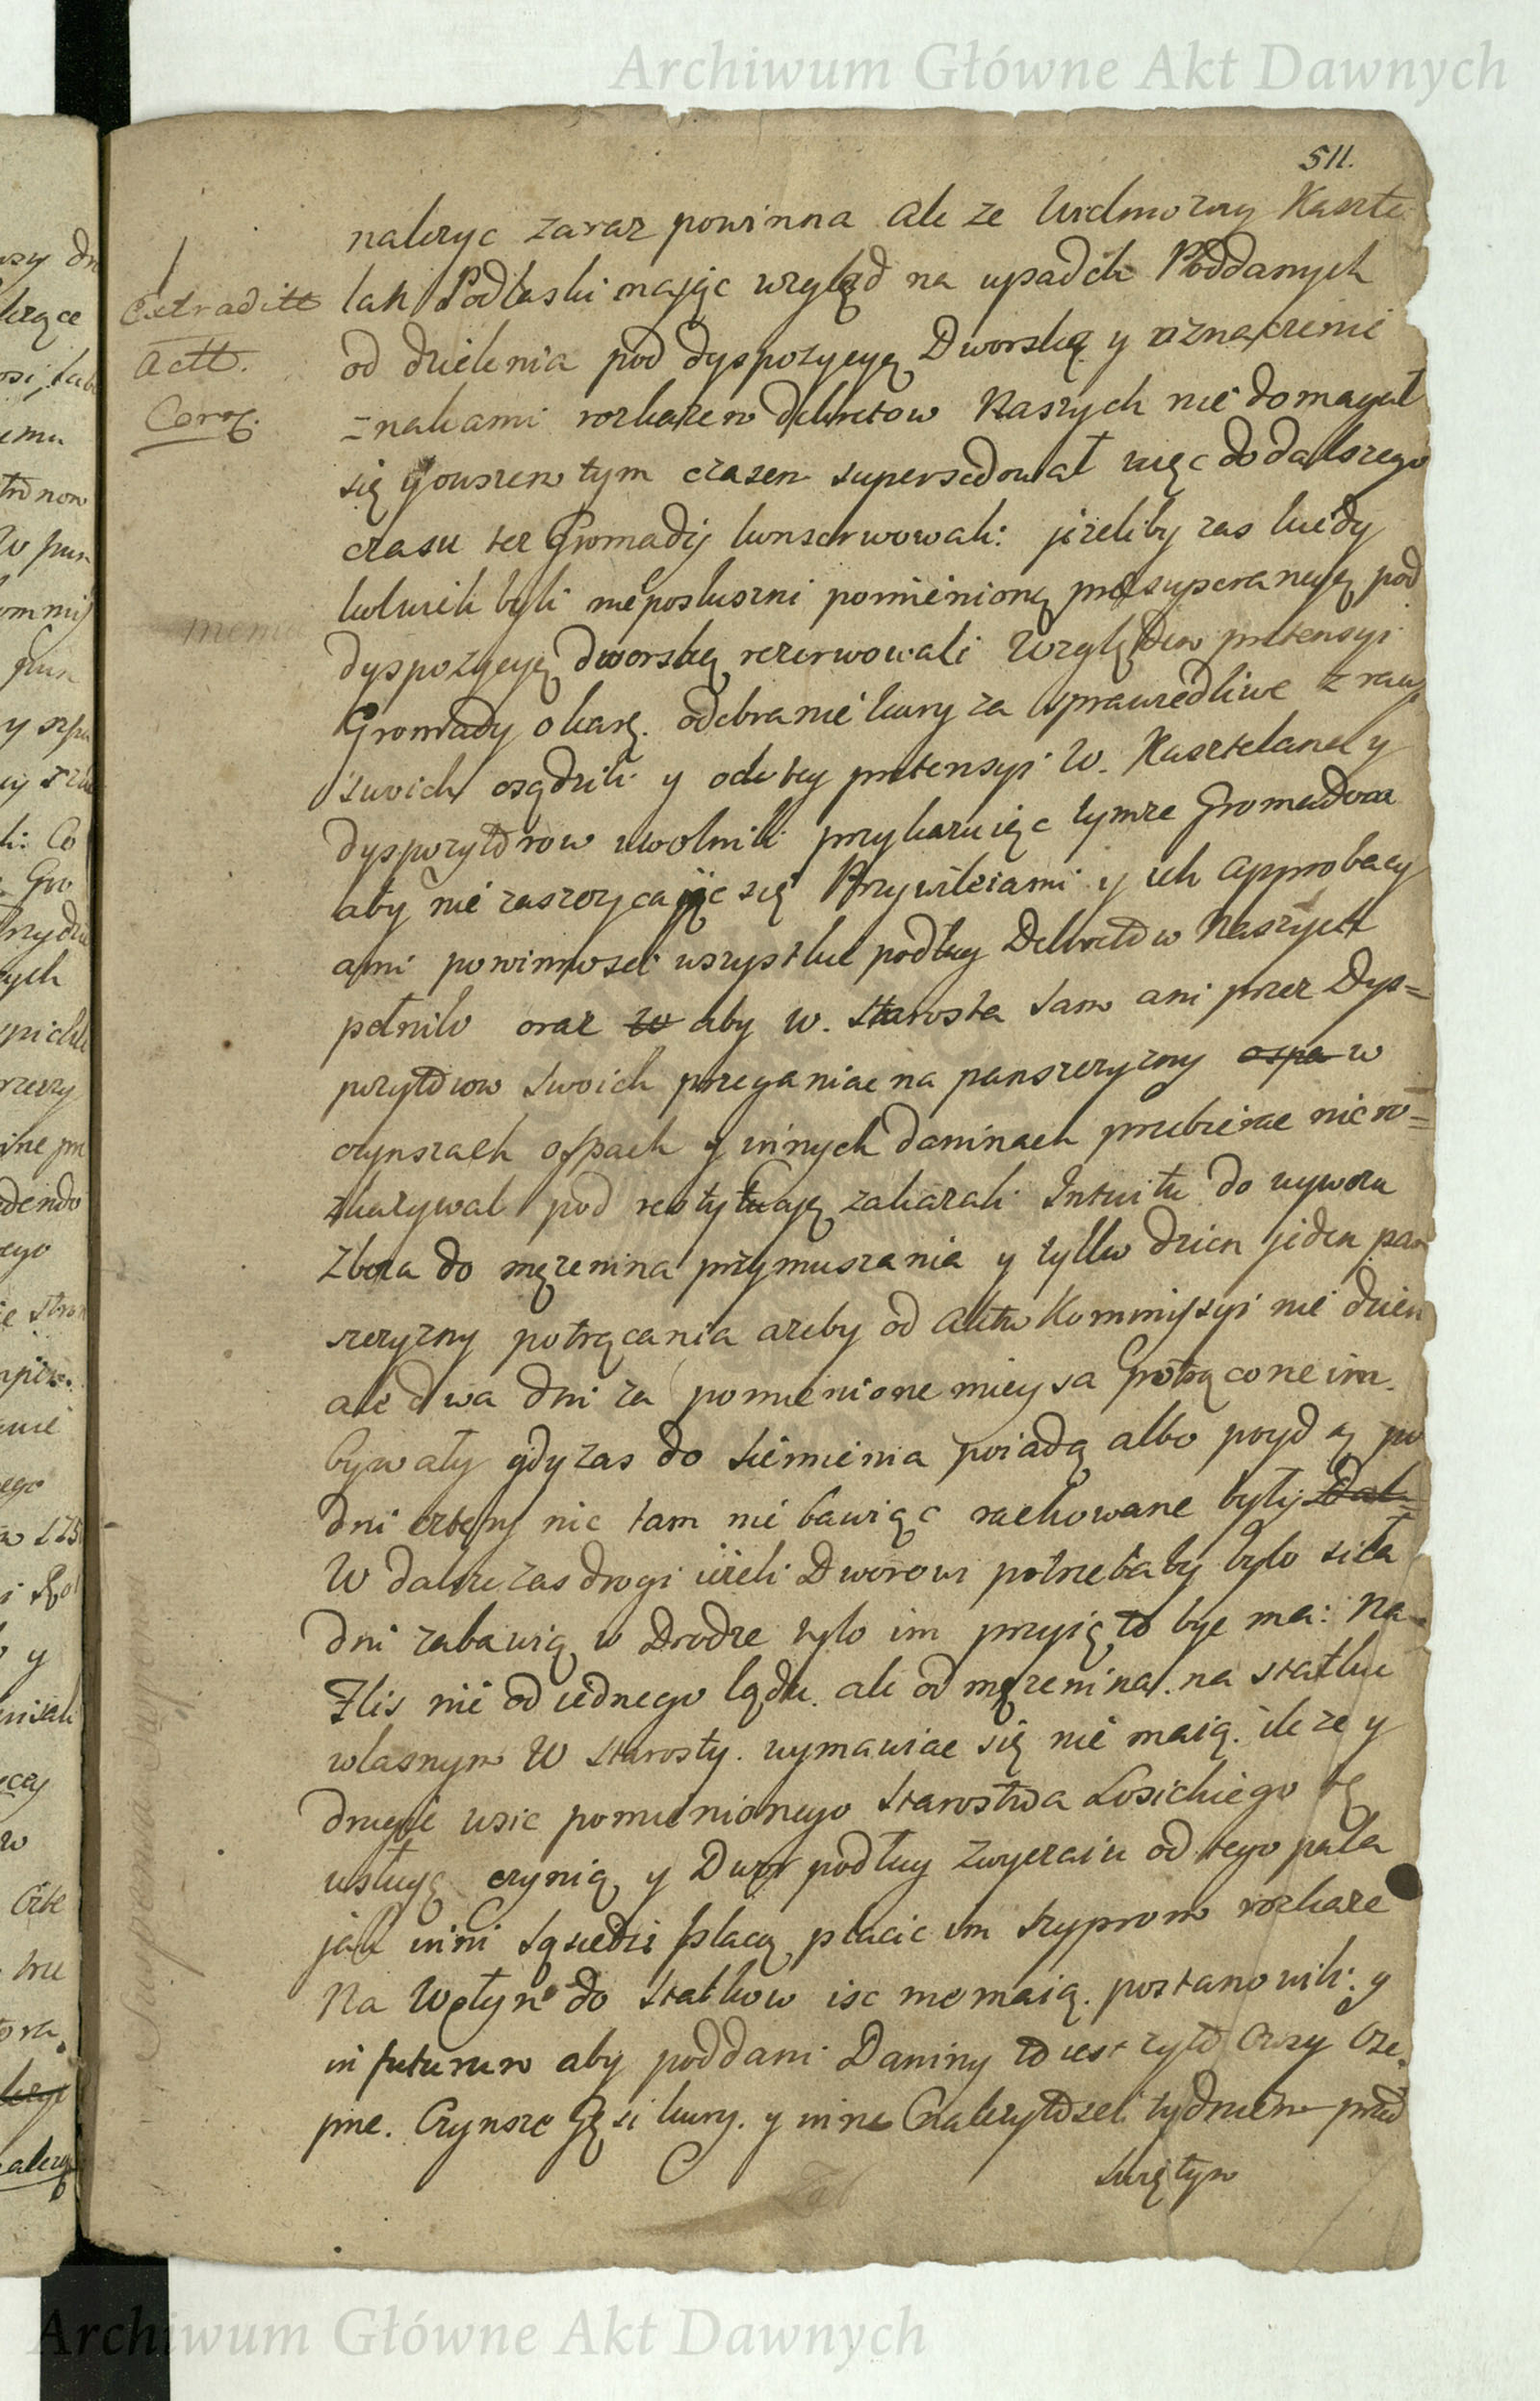 Archiwum Główne Akt Dawnych
511.
należyc zaraz powinna ale ze Wielmozny Kaszte
lan Podlaski mając wzgląd na upadek Poddanych
od dzielenia pod dyspozycyą Dworską y uznaczenie
znakami rozkazem dekretow Naszych nie domagał
się y owszem tym czasem supersedował więc do dalszego
czasu też Gromady konserwowali: jeżeliby zas kiedy
kolwiek byli nieposłuszni pomienioną pod
dyspozycyą dworską rezerwowali Względem pretensyi
Gromady o karę. odebranie kury za sprawiedliwe z racyi
swoich osądzili y od tey pretensyi W. Kasztelana y
dyspozytorow uwolnili przykazując tymze Gromadom
aby nie zaszczycając się Przywileiami y ich approbacy
ami powinnosci wszystkie podług Dekretow Naszych
pełnili oraz w aby W. Starosta sam ani przez Dys=
pozytorow swoich przeganiac na panszczyzny ospa w
czynszach osspach y innych daninach przebierac nie ro=
zkazywal pod restytucyą zakazali Intuitu do wywozu
Zboza do męzenina przymuszania y tylko dzien jeden pan
szczyzny potrącania azeby od aktu Kommissyi nie dzien
ale dwa dni za pomienione mieysca potrącone im
bywały gdy zas do Siemienia poiadą albo poydą po
dni cztery nic tam nie bawiąc rachowane były Dal=
W dalsze zas drogi ieżeli Dworowi potrzeba by było siła
dni zabawią w Drodze tylo im przyięto byc ma: Na
Flis nie od iednego lądu. ale od męzenina. na statku
własnym W Starosty. wymawiac się nie maią. ile ze y
drugie wsie pomienionego Starostwa Łosickiego tę
usługę czynią y Dwor podług zwyczaiu od tego pala
jak inni sąsiedzi płacą płacic im szyprom rozkaze
Na Wołyn do Statkow isc nie maią. postanowili: y
in futurum aby poddani Daniny to iest żyto Owsy Cze.
pne. Czynsze Gęsi kury. y inne należytosci tydniem przed
swiętym
extraditt
actt.
Corr.
Archiwum Główne Akt Dawnych